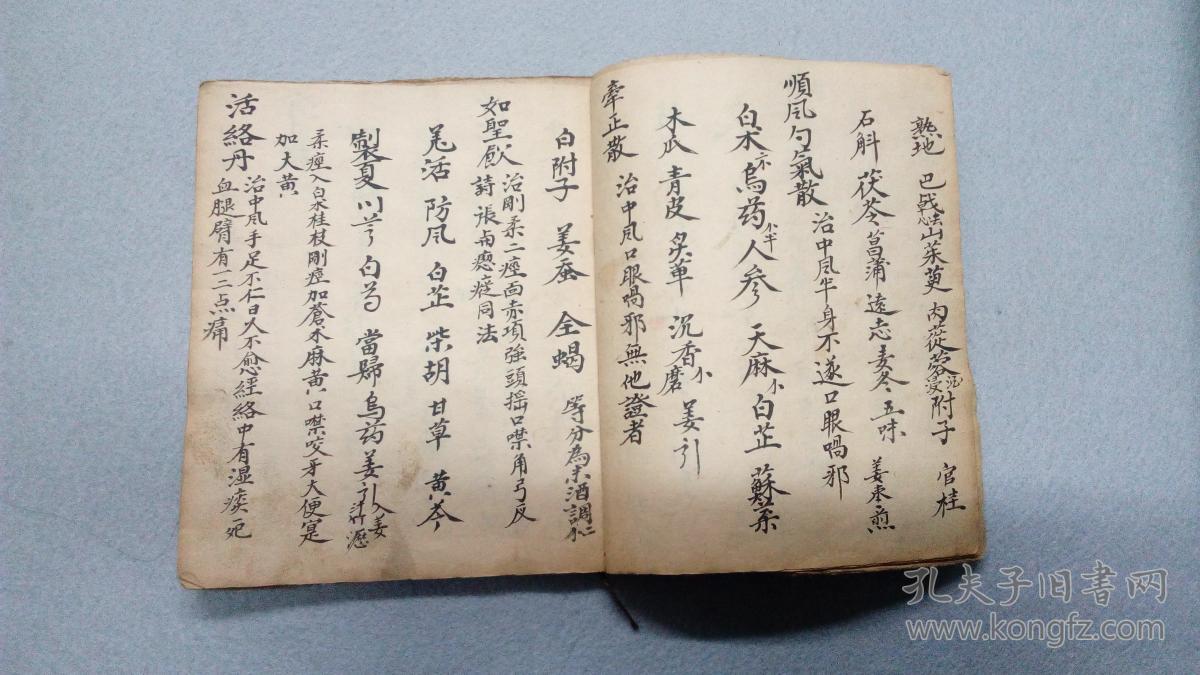 熟地 巴戟去心 山茱萸 肉蓯蓉酒浸 附子 官桂
石斛 茯苓 菖蒲 遠志 麦冬 五味 姜枣煎
順风勻氣散 治中风半身不遂口眼喎邪
白术 烏药 人参 天麻小 白芷 蘇
木瓜 青皮 炙草 沉香磨小 姜引
牽正散 治中风口眼喎邪無他證者
白附子 姜蚕 全蝎 等分為末酒調二
如聖飲 治剛柔二痙面赤項強頭搖口噤角弓反
張與瘛瘲同法
羌活 防风 白芷 柴胡 甘草 黄芩
製夏 川芎 白芍 當歸 烏药 姜引入姜汁竹瀝
柔痙入白术桂枝剛痙加蒼术麻黄口噤咬牙大便寔
加大黄
活絡丹 治中风手足不仁日久不愈經絡中有湿痰死
血腿臂有一二点痛
孔夫子旧书网
www.kongfz.com